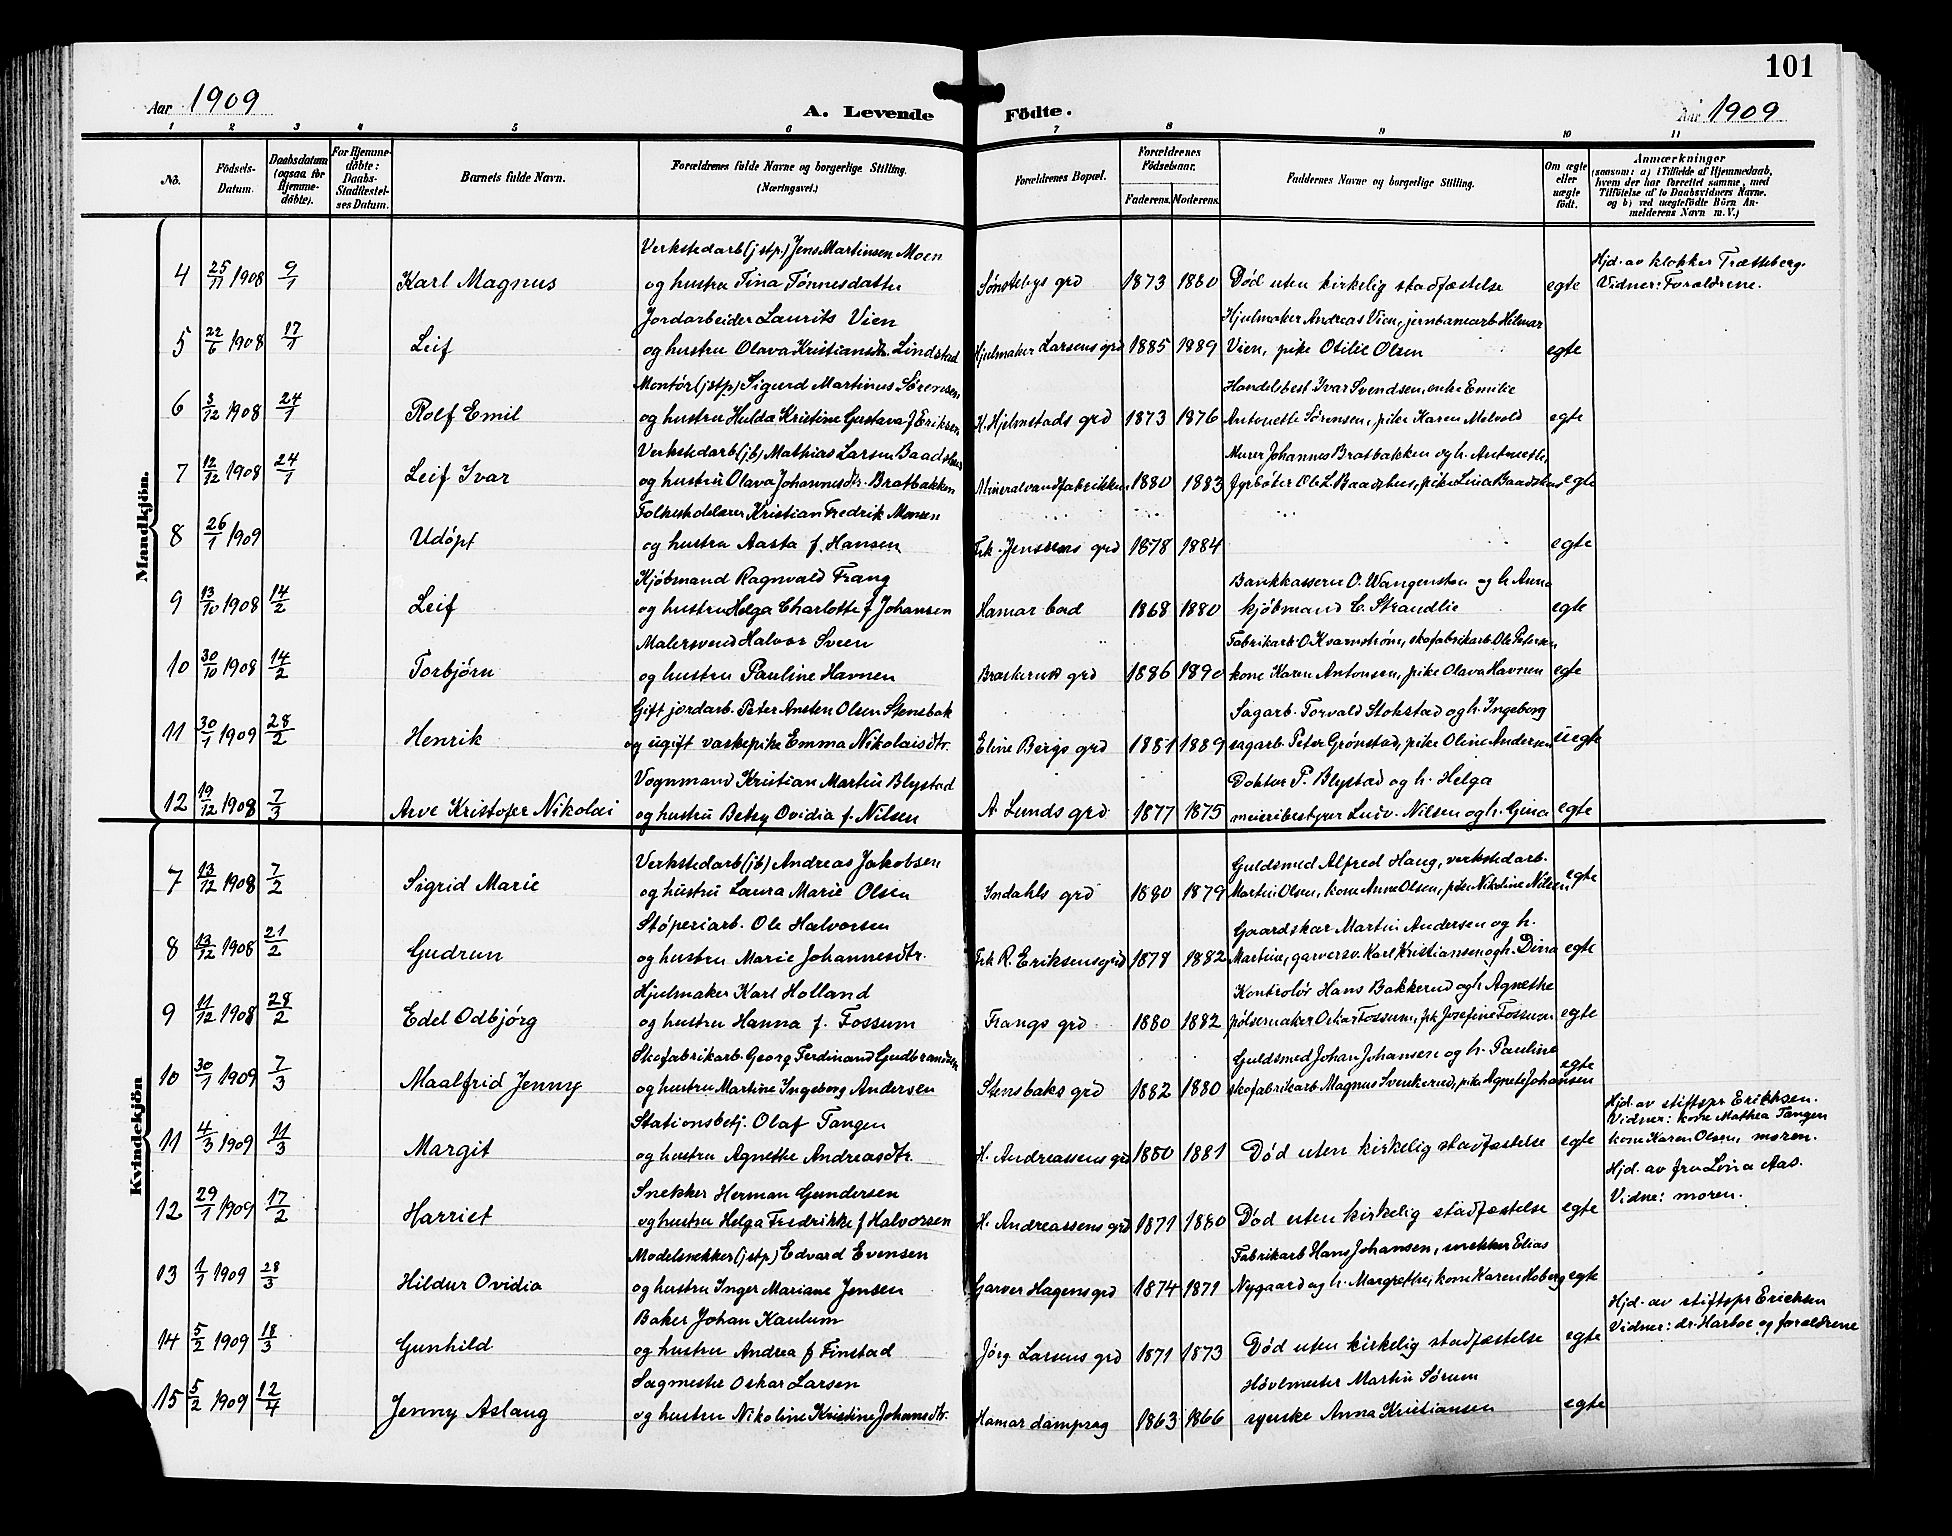 101
Aar 1909
A. Levende Födte.
Aar 1909
1 2 3 4 5 6 7 8 9 10 11
Nö.
Födsels-Datum.
Daabsdatum (ogsaa for Hjemmedäbte).
For Hjemmedäbte: Daabs-Stadfæstelses Datum.
Barnets fulde Navn.
Forældrenes fulde Navne og borgerlige Stilling. (Næringsvei.)
Forældrenes Bopæl.
Forældrenes Födselsaar.
Faderens. Moderens.
Faddernes Navne og borgerlige Stilling.
Om ægte eller uægte födt.
Anmærkninger
(saasom: a) i Tilfælde af Hjemmedaab, hvem der har forrettet samme, med Tilföielse af to Daabsvidners Navne. og b) ved uægtefödte Börn Anmelderens Navn m. V.)
Mandkjön.
4 25/11 1908 9/1 Karl Magnus
Verkstedarb (jstp.) Jens Martinsen Moen
og hustru Tina Tønnesdatter
Sønstebys grd 1873 1880 Død uten kirkelig stadfæstelse egte
Hjd. av klokker Trætteberg.
Vidner: Forældrene.
5 22/6 1908 17/1 Leif
Jordarbeider Laurits Vien
og hustru Olava Kristiansdtr. Lindstad
Hjulmaker Larsens grd 1885 1889
Hjulmaker Andreas Vien, jernbanearb Hilmar
Vien, pike Otilie Olsen egte
6 3/12 1908 24/1 Rolf Emil
Montör (jstp) Sigurd Martinus Sörensen
og hustru Hulda Kristine Gustava f Eriksen
K. Hjelmstads grd 1873 1876
Handelsbest Ivar Svendsen, enke Emilie
Antonette Sörensen, piker Karen Melvold egte
7 12/12 1908 24/1 Leif Ivar
Verkstedarb (jb) Mathias Larsen Baadshus
og hustru Olava Johannesdtr. Bratbakken
Mineralvandfabrikken 1880 1883
Murer Johannes Bratbakken og h. Antonette,
fyrbøter Ole L Baadshus, pike Lina Baadshus egte
8 26/1 1909 Udöpt
Folkeskolelærer Kristian Fredrik Monsen
og hustru Aasta f. Hansen
Frk. Jenssens grd 1878 1884 egte
9 13/10 1908 14/2 Leif
Kjöbmand Ragnvald Frang
og hustru Helga Charlotte f Johansen
Hamar bad 1868 1880
Bankkasserer O. Wangensten og h. Anna
kjöbmand C. Strandlie egte
10 30/10 1908 14/2 Torbjörn
Malersvend Halvor Sveen
og hustru Pauline Havnen
Braskeruds grd 1886 1890
Fabrikarb. O Kvarnström, skofabrikarb. Ole Petersen
kone Karen Antonsen, pike Olava Havnen egte
11 30/1 1909 28/2 Henrik
Gift jordarb. Peter Ansten Olsen Stensbak
og ugift vaskepike Emma Nikolaisdtr.
Eline Bergs grd 1881 1889
Sagarb. Torvald Stokstad og h. Ingeborg
sagarb. Peter Grønstad, pike Oline Andersen uegte
12 19/12 1908 7/3 Arve Kristofer Nikolai
Vognmand Kristian Martin Blystad
og hustru Betsy Ovidia f. Nilsen
A. Lunds grd 1877 1875
Doktor P. Blystad og h. Helga
meieribestyrer Ludv. Nilsen og h. Gina egte
Kvindekjön
7 13/12 1908 7/2 Sigrid Marie
Verkstedarb (jb) Andreas Jakobsen
og hustru Laura Marie Olsen
Indahls grd 1880 1879
Guldsmed Alfred Haug, verkstedarb.
Martin Olsen, kone Anne Olsen, pike Nikoline Nilsen egte
8 13/12 1908 21/2 Gudrun
Stöperiarb. Ole Halvorsen
og hustru Marie Johannesdtr.
Frk R. Eriksens grd 1878 1882
Gaardskar Martin Andersen og h.
Martine, garversv. Karl Kristiansen og h. Dina egte
9 11/12 1908 28/2 Edel Odbjörg
Hjulmaker Karl Holland
og hustru Hanna f. Fossum
Frangs grd 1880 1882
Kontrolör Hans Bakkerud og h Agnethe
pölsemaker Oskar Fossum, pk Josefine Fossum egte
10 30/1 1909 7/3 Maalfrid Jenny
Skofabrikarb. Georg Ferdinand Gudbrandsen
og hustru Martine Ingeborg Andersen
Stensbaks grd 1882 1880
Guldsmed Johan Johansen og h. Pauline
skofabrikarb Magnus Svenkerud, pike Agnete Johansen egte
11 4/3 1909 11/3 Margit
Stationsbetj. Olaf Tangen
og hustru Agnethe Andreasdtr.
H. Andreassens grd 1880 1881 Död uten kirkelig stadfæstelse egte
Hjd. av stiftspr Eriksen.
Vidner: kone Mathea Tangen
kone Karen Olsen, moren.
12 29/1 1909 17/2 Harriet
Snekker Herman Gundersen
og hustru Helga Fredrikke f Halvorsen
H. Andreassens grd 1871 1880 Död uten kirkelig stadfæstelse egte
Hjd. av fru Lina Aas.
Vidne: moren.
13 1/1 1909 28/3 Hildur Ovidia
Modelsnekker (jstp) Edvard Evensen
og hustru Inger Mariane Jensen
Garver Hagens grd 1874 1871
Fabrikarb Hans Johansen, snekker Elias
Nygaard og h. Margrethe, kone Karen Hoberg egte
14 5/2 1909 18/3 Gunhild
Baker Johan Kaulum
og hustru Andrea f Finstad
Jörg Larsens grd 1871 1873 Död uten kirkelig stadfæstelse egte
Hjd. av stiftspr Ericksen
Vidner: dr. Harboe og forældrene
15 5/2 1909 12/4 Jenny Aslaug
Sagmester Oskar Larsen
og hustru Nikoline Kristine Johansdtr.
Hamar dampsag 1863 1866
Hövlmester Martin Sörum
syerske Anna Kristiansen egte